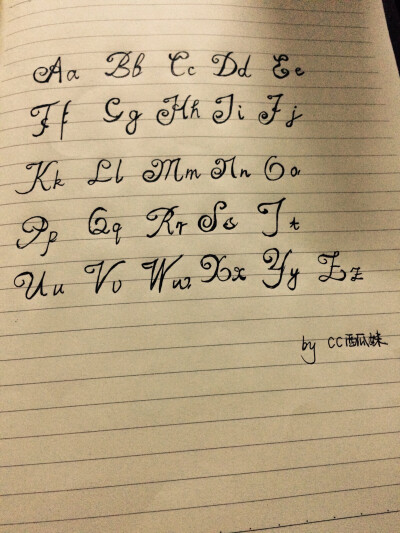 Aa Bb Cc Dd Ee
Ff Gg Hh Ii Jj
Kk Ll Mm Nn Oo
Pp Qq Rr Ss Tt
Uu Vv Ww Xx Yy Zz
by CC西瓜妹